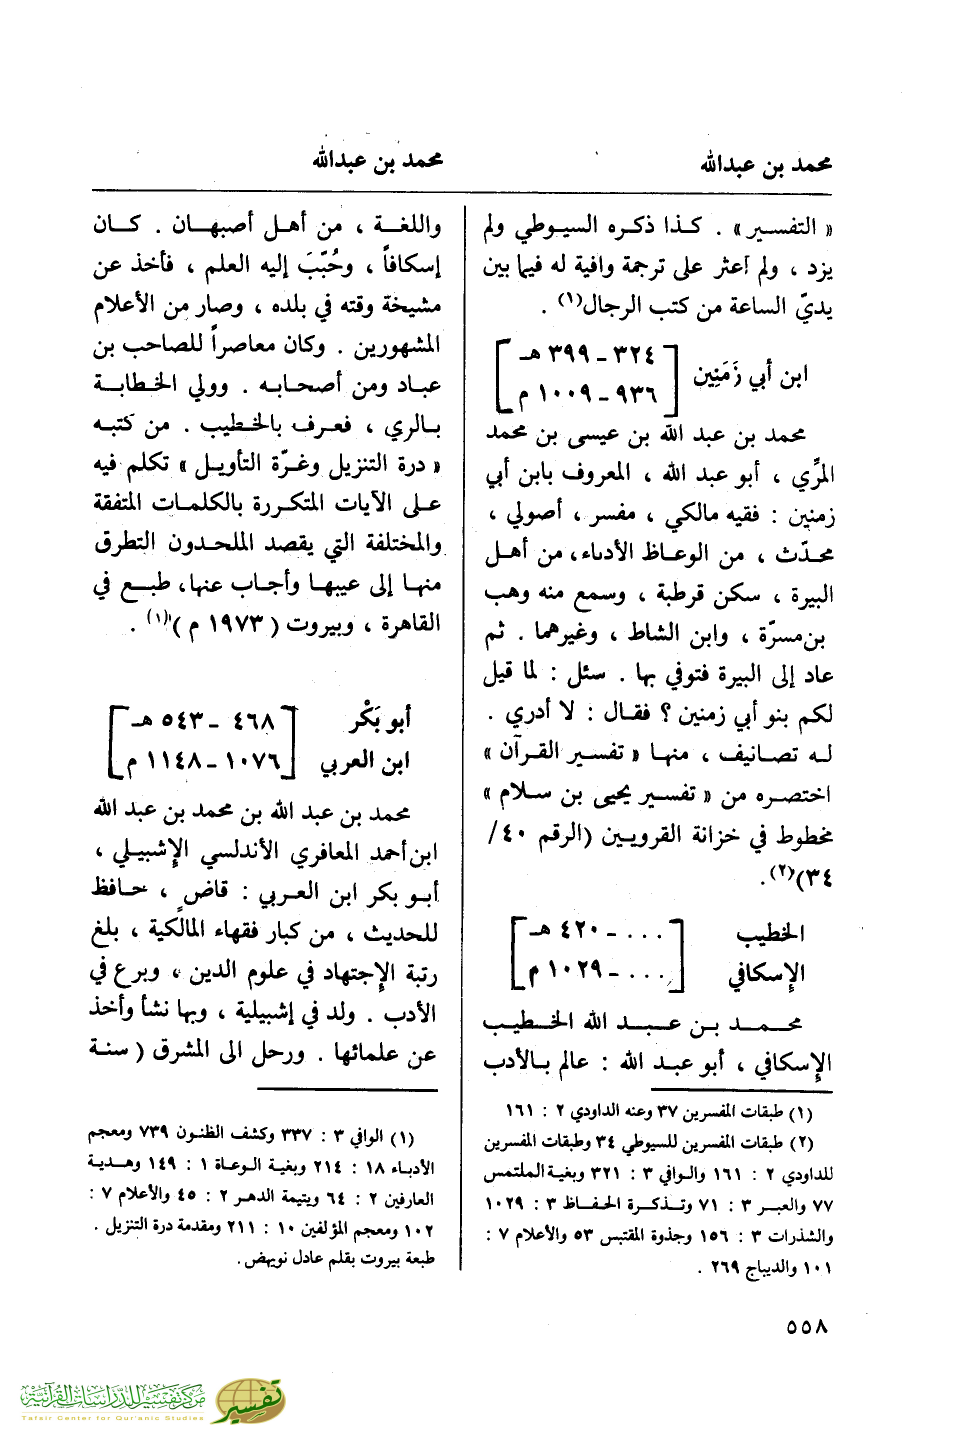 محمد بن عبدالله
محمد بن عبدالله
« التفسير » . كذا ذكره السيوطي ولم
يزد ، ولم أعثر على ترجمة وافية له فيما بين
يديّ الساعة من كتب الرجال(١) .
ابن أبي زَمَنِين
[ ٣٢٤ - ٣٩٩ هـ
٩٣٦ - ١٠٠٩ م ]
محمد بن عبد الله بن عيسى بن محمد
المرِّي ، أبو عبد الله ، المعروف بابن أبي
زمنين : فقيه مالكي ، مفسر ، أصولي ،
محدّث ، من الوعاظ الأدباء، من أهل
البيرة ، سكن قرطبة ، وسمع منه وهب
بن مسرّة ، وابن الشاط ، وغيرهما . ثم
عاد إلى البيرة فتوفي بها . سئل : لما قيل
لكم بنو أبي زمنين ؟ فقال : لا أدري .
له تصانيف ، منها « تفسير القرآن »
اختصره من « تفسير يحيى بن سلام »
مخطوط في خزانة القرويين (الرقم ٤٠ /
٣٤)(٢).
الخطيب
الإسكافي
[ ... - ٤٢٠ هـ
... - ١٠٢٩ م ]
محمد بن عبد الله الخطيب
الإسكافي ، أبو عبد الله : عالم بالأدب
(١) طبقات المفسرين ٣٧ وعنه الداودي ٢ : ١٦١
(٢) طبقات المفسرين للسيوطي ٣٤ وطبقات المفسرين
للداودي ٢ : ١٦١ والوافي ٣ : ٣٢١ وبغية الملتمس
٧٧ والعبر ٣ : ٧١ وتذكرة الحفاظ ٣ : ١٠٢٩
والشذرات ٣ : ١٥٦ وجذوة المقتبس ٥٣ والأعلام ٧ :
١٠١ والديباج ٢٦٩ .
واللغة ، من أهل أصبهان . كان
إسكافاً ، وحُبّبَ إليه العلم ، فأخذ عن
مشيخة وقته في بلده ، وصار من الأعلام
المشهورين . وكان معاصراً للصاحب بن
عباد ومن أصحابه . وولي الخطابة
بالري ، فعرف بالخطيب . من كتبه
« درة التنزيل وغرّة التأويل » تكلم فيه
على الآيات المتكررة بالكلمات المتفقة
والمختلفة التي يقصد الملحدون التطرق
منها إلى عيبها وأجاب عنها، طبع في
القاهرة ، وبيروت ( ١٩٧٣ م )(١) .
أبو بَكْر
ابن العربي
[ ٤٦٨ - ٥٤٣ هـ
١٠٧٦ - ١١٤٨ م ]
محمد بن عبد الله بن محمد بن عبد الله
ابن أحمد المعافري الأندلسي الإشبيلي ،
أبو بكر ابن العربي : قاضٍ ، حافظ
للحديث ، من كبار فقهاء المالكية ، بلغ
رتبة الإجتهاد في علوم الدين ، وبرع في
الأدب . ولد في إشبيلية ، وبها نشأ وأخذ
عن علمائها . ورحل الى المشرق ( سنة
(١) الوافي ٣ : ٣٣٧ وكشف الظنون ٧٣٩ ومعجم
الأدباء ١٨ : ٢١٤ وبغية الوعاة ١ : ١٤٩ وهدية
العارفين ٢ : ٦٤ ويتيمة الدهر ٢ : ٤٥ والأعلام ٧ :
١٠٢ ومعجم المؤلفين ١٠ : ٢١١ ومقدمة درة التنزيل .
طبعة بيروت بقلم عادل نويهض.
٥٥٨
مركز تفسير للدراسات القرآنية
Tafsir Center for Qur'anic Studies
تفسير